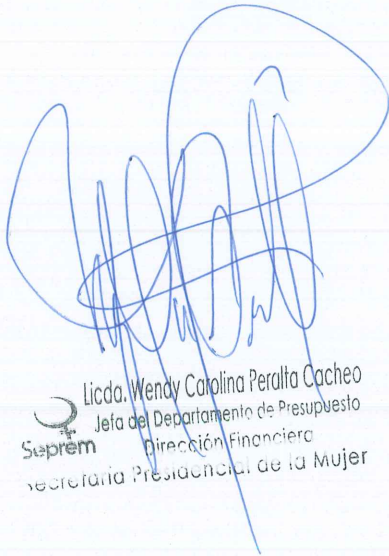 Licda. Wendy Carolina Peralta Cacheo
Jefa del Departamento de Presupuesto
Seprem
Dirección Financiera
Secretaría Presidencial de la Mujer